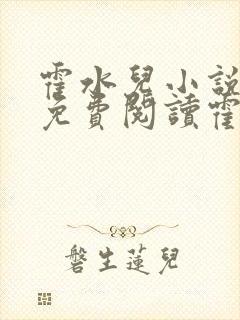 霍水兒小說
免費閱讀霍
磐生蓮兒